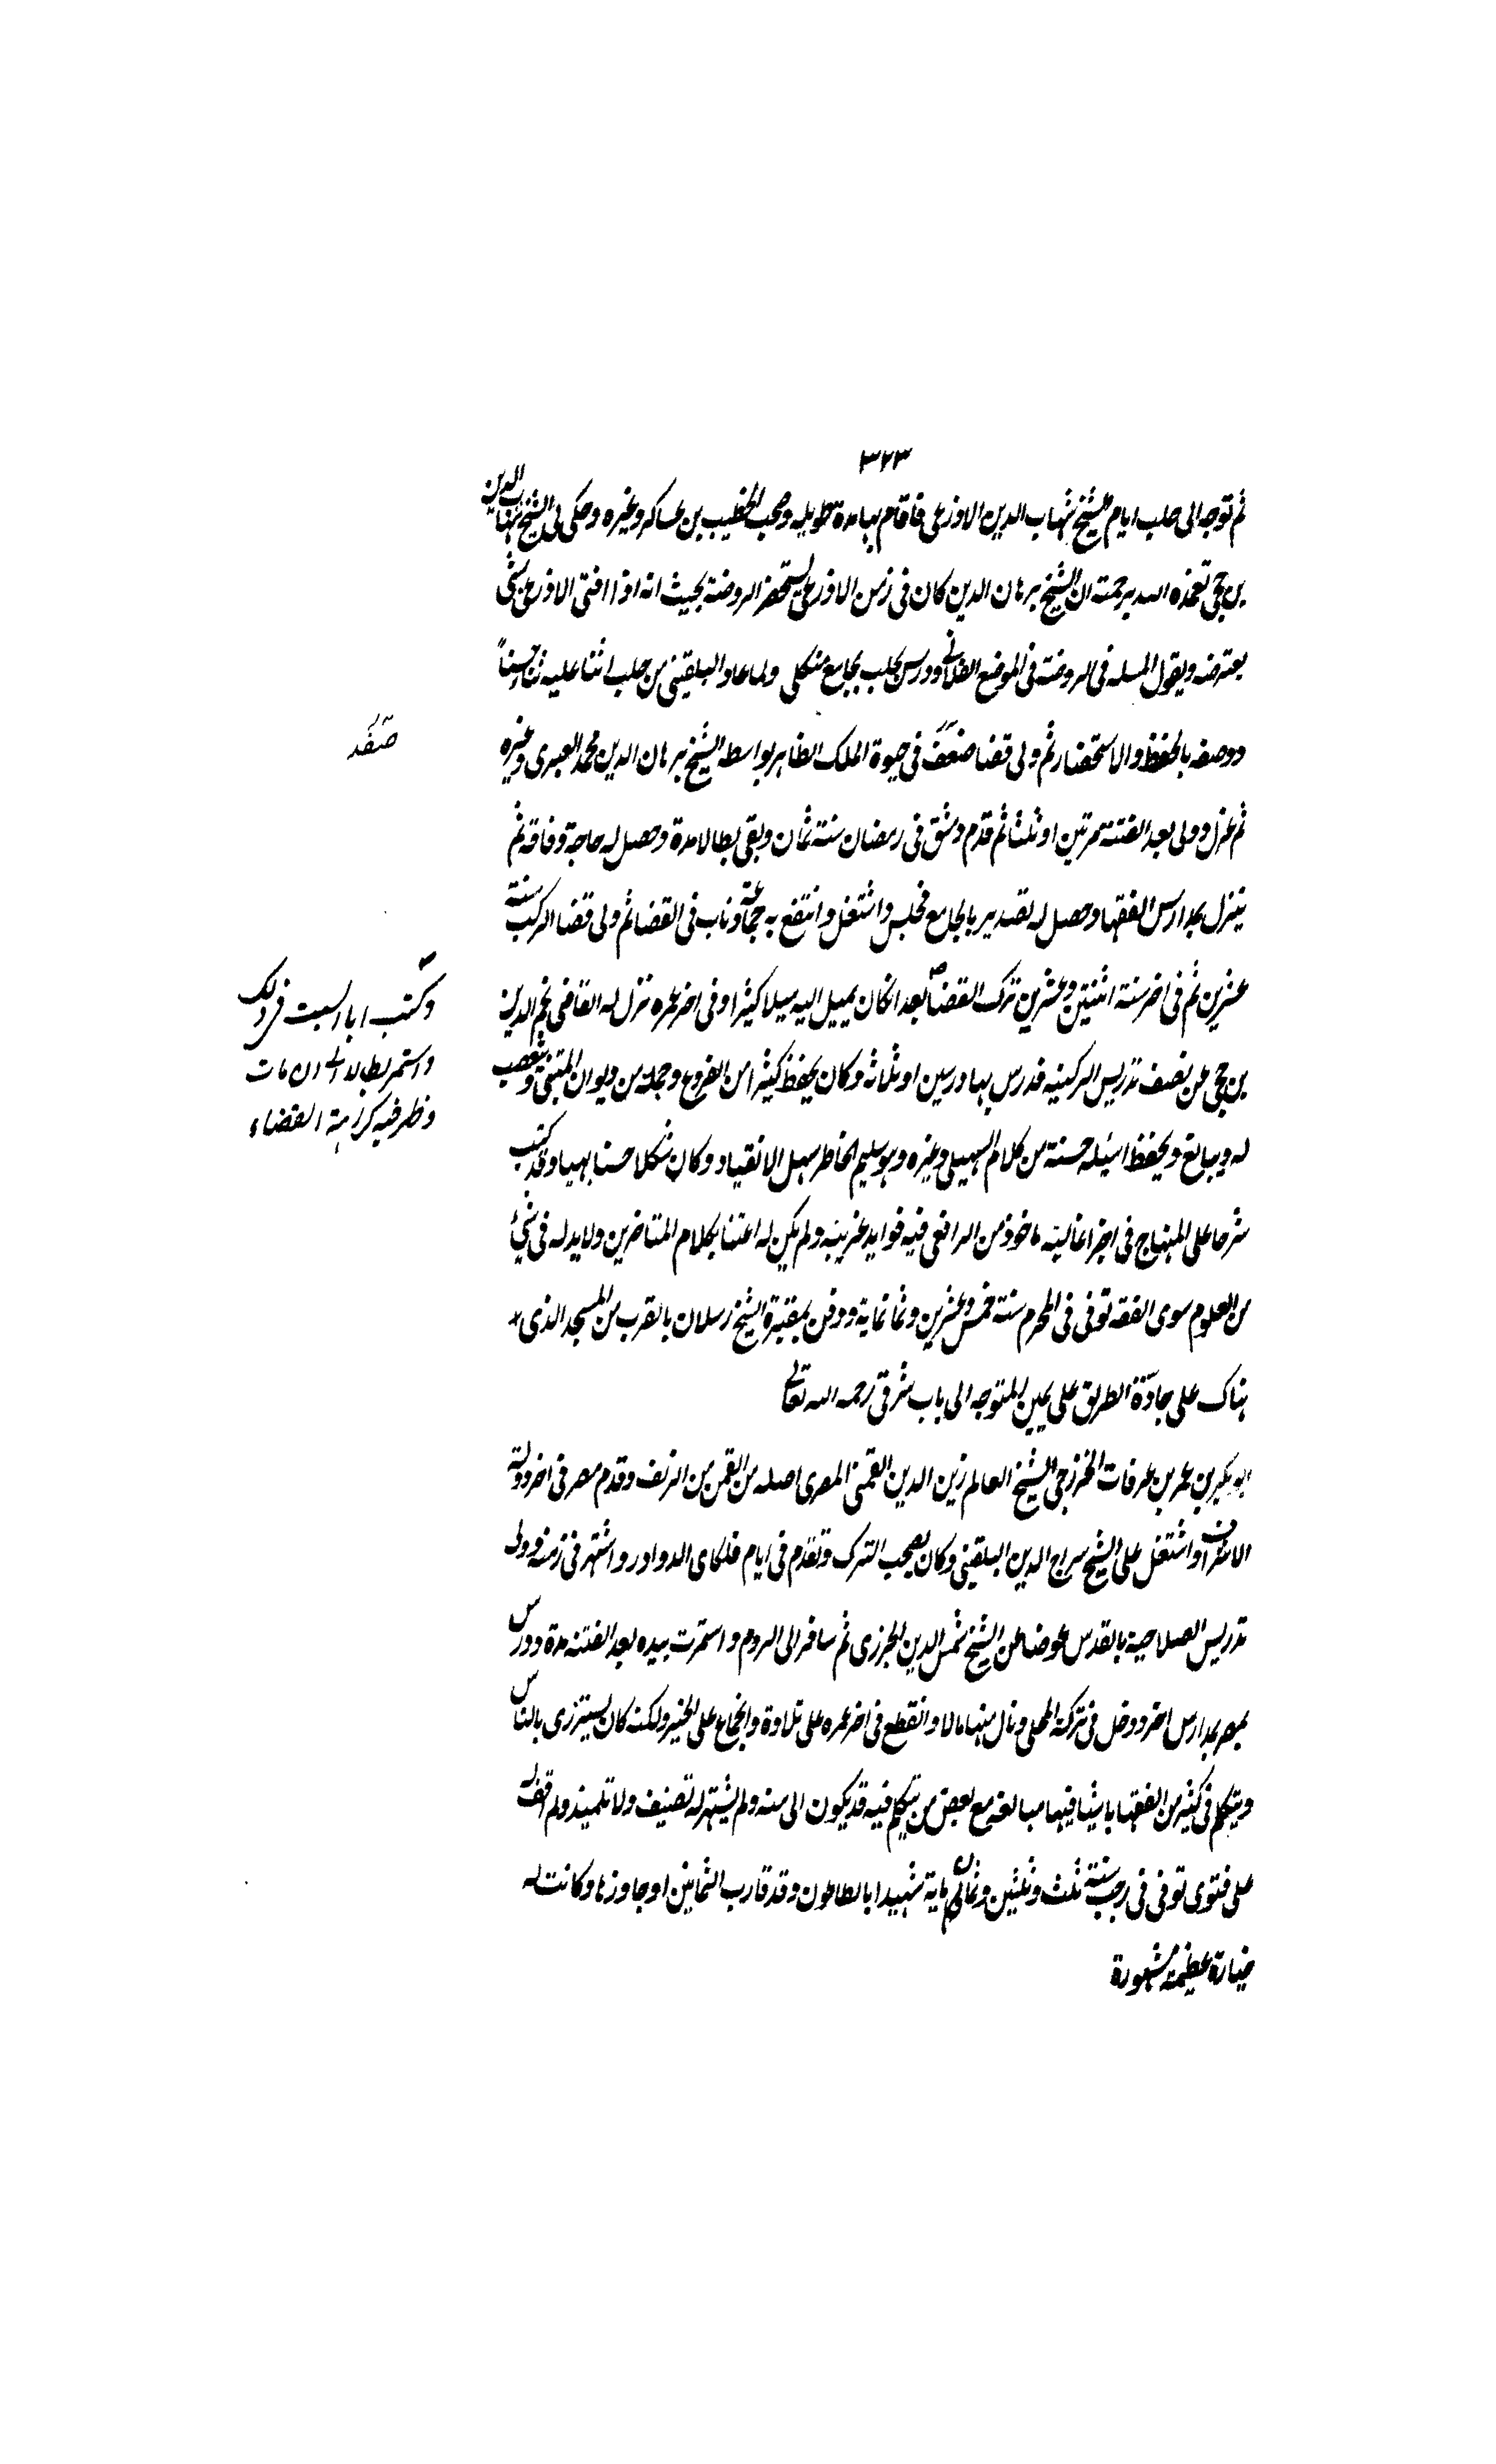 ٣٢٣
ثم توجه الى حلب ايام الشيخ شهاب الدين الاذرعى فاقام بها مدة طويله وصحب الخطيب بن عساكر وغيره وحكى لى الشيخ شهاب الدين
بن حجى تغمده الله برحمته ان الشيخ برهان الدين كان فى زمن الاذرعى يستحضر الروضة بحيث انه اذا افتى الاذرعى بشئ
يعترضه ويقول المسله فى الروضة فى الموضع الفلانى ودرس بحلب بجامع منكلى ولما عاد البلقينى من حلب اثنا عليه ثناء حسناً
ووصفه بالحفظ والاستحضار ثم ولى قضا صفد فى حيوة الملك الظاهر بواسطه الشيخ برهان الدين محمد العبرى وغيره
صفد
ثم عزل وولى بعد الفتنة مرتين او ثلثا ثم قدم دمشق فى رمضان سنة ثمان وبقى بطالا مدة وحصل له حاجة وفاقه ثم
ينزل بمدارس الفقها وحصل له تصدير بالجامع فجلس واشتغل وانتفع به جماعة وناب فى القضا ثم ولى قضا الركب سنة
عشرين ثم فى اخر سنة اثنتين وعشرين ترك القضا بعد ان كان يميل اليه ميلا كثيرا وفى اخر عمره نزل له القاضى نجم الدين
وكتب ابا السبت فى ذلك
واستمر بطالا الى ان مات
وظهر فيه كراهة القضاء
بن حجى عن نصف تدريس الركنيه فدرس بها درسين او ثلاثه وكان يحفظ كثيرا من الفروع وجملة من ديوان المتنبى وتعصب
له ويبالغ ويحفظ اسئله حسنة من كلام السهيلى وغيره وهو سليم الخاطر سهل الانقياد وكان شكلا حسنا بهيا وقد كتب
شرحا على المنهاج فى اجزا غالبه ماخوذ من الرافعى فيه فوايد غريبه ولم يكن له اعتنا بكلام المتاخرين ولا يد له فى شئ
من العلوم سوى الفقه توفى فى المحرم سنة خمس وعشرين وثمانماية ودفن بمقبرة الشيخ رسلان بالقرب من المسجد الذى
هناك على جادّة الطريق على يمين المتوجه الى باب شرقى رحمه الله تعالى
ابو بكر بن عمر بن عرفات الخزرجى الشيخ العالم زين الدين القمنى المصرى اصله من القمن من الريف وقدم مصر فى اخر دولة
الاشرف واشتغل على الشيخ سراج الدين البلقينى وكان يصحب الترك وتقدم فى ايام قلمطاى الدوادار واشتهر فى زمنه وولى
تدريس الصلاحية بالقدس عوضا عن الشيخ شمس الدين الجزرى ثم سافر الى الروم واستمرت بيده بعد الفتنه مدة ودرس
بمصر بمدارس اخر ودخل فى تركة المحلى ونال منها مالا وانقطع فى اخر عمره على تلاوة وانجماع على الخير ولكنه كان يستزرى بالناس
ويتكلم فى كثير من الفقها باشيا فيها مبالغه مع بعض من يتكلم فيه قد يكون الى سنه ولم يشتهر له تصنيف ولا تلميذ ولم اقف له
على فتوى توفى فى رجب سنة ثلث وثلثين وثمان ماية شهيدا بالطاعون وقد قارب الثمانين او جاوزها وكانت له
جنازة عظيمة مشهورة